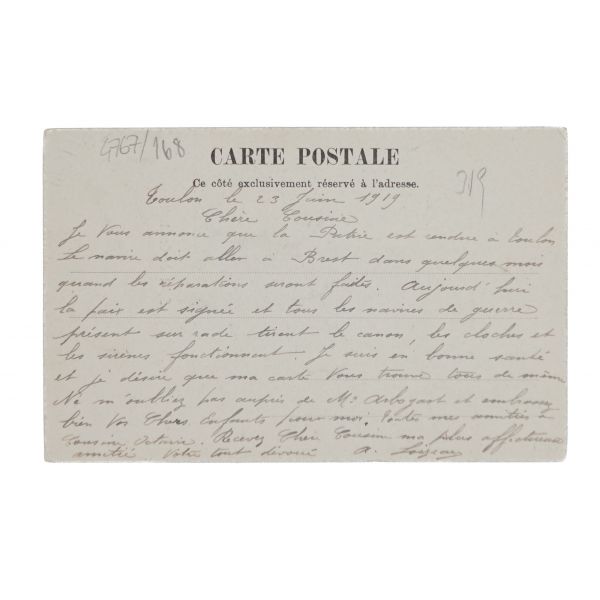 4767/168
CARTE POSTALE
Ce côté exclusivement réservé à l'adresse.
319
Toulon le 23 Juin 1919
Chère Cousine
Je Vous annonce que la Patrie est rendue à Toulon
Le navire doit aller à Brest dans quelques mois
quand les réparations seront faites. Aujourd'hui
la paix est signée et tous les navires de guerre
présent sur rade tirent le canon, les cloches et
les sirènes fonctionnent. Je suis en bonne santé
et je désire que ma carte Vous trouve tous de même
Ne m'oubliez pas auprès de Mr Arbogart et embrassez
bien Vos Chers Enfants pour moi. Toutes mes amitiés à
Cousine Octavie. Recevez Chère Cousine ma plus affectueuse
amitié Votre tout dévoué A.